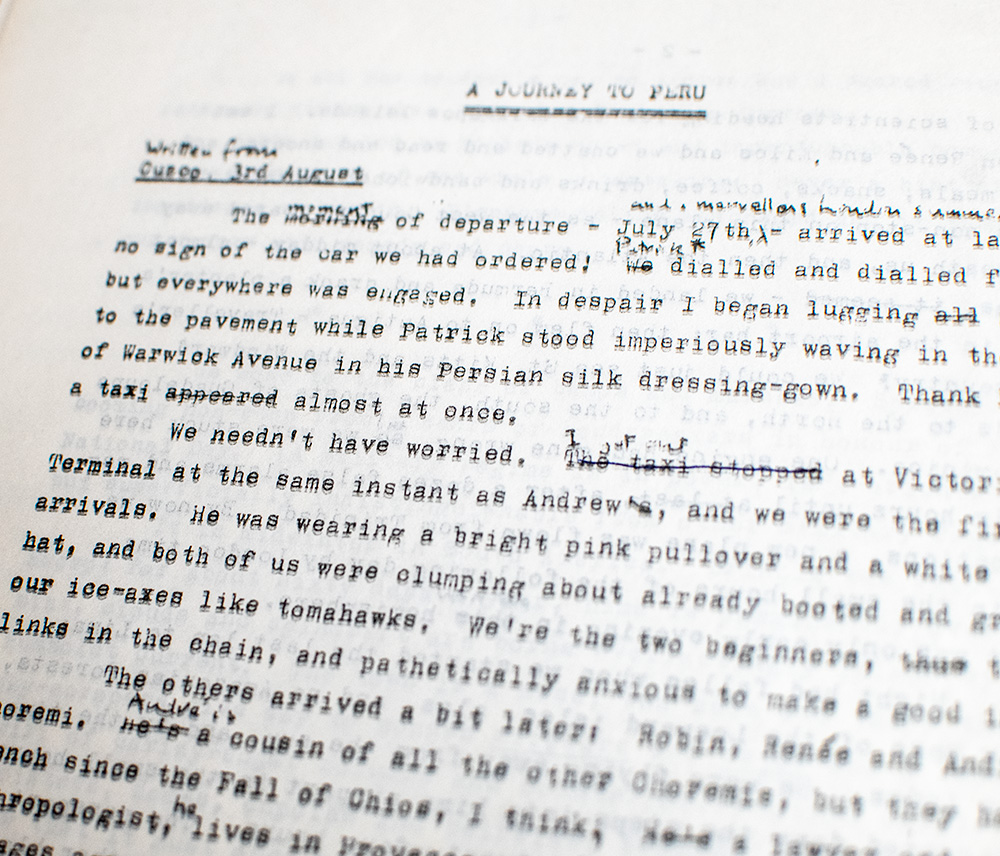 A JOURNEY TO PERU
Written from
Cuzco, 3rd August
moment and a marvellous
The morning of departure - July 27th, - arrived at la
Patrick*
no sign of the car we had ordered! We dialled and dialled f
but everywhere was engaged. In despair I began lugging all
to the pavement while Patrick stood imperiously waving in th
of Warwick Avenue in his Persian silk dressing-gown. Thank
a taxi appeared almost at once.
I got out
We needn't have worried. The taxi stopped at Victori
Terminal at the same instant as Andrew, and we were the fir
arrivals. He was wearing a bright pink pullover and a white
hat, and both of us were clumping about already booted and gr
our ice-axes like tomahawks. We're the two beginners, thus t
links in the chain, and pathetically anxious to make a good i
The others arrived a bit later: Robin, Renée and And
André is
oremi. He's a cousin of all the other Choremis, but they h
ench since the Fall of Chios, I think; He's a lawyer
he
hropologist, lives in Provence
ages